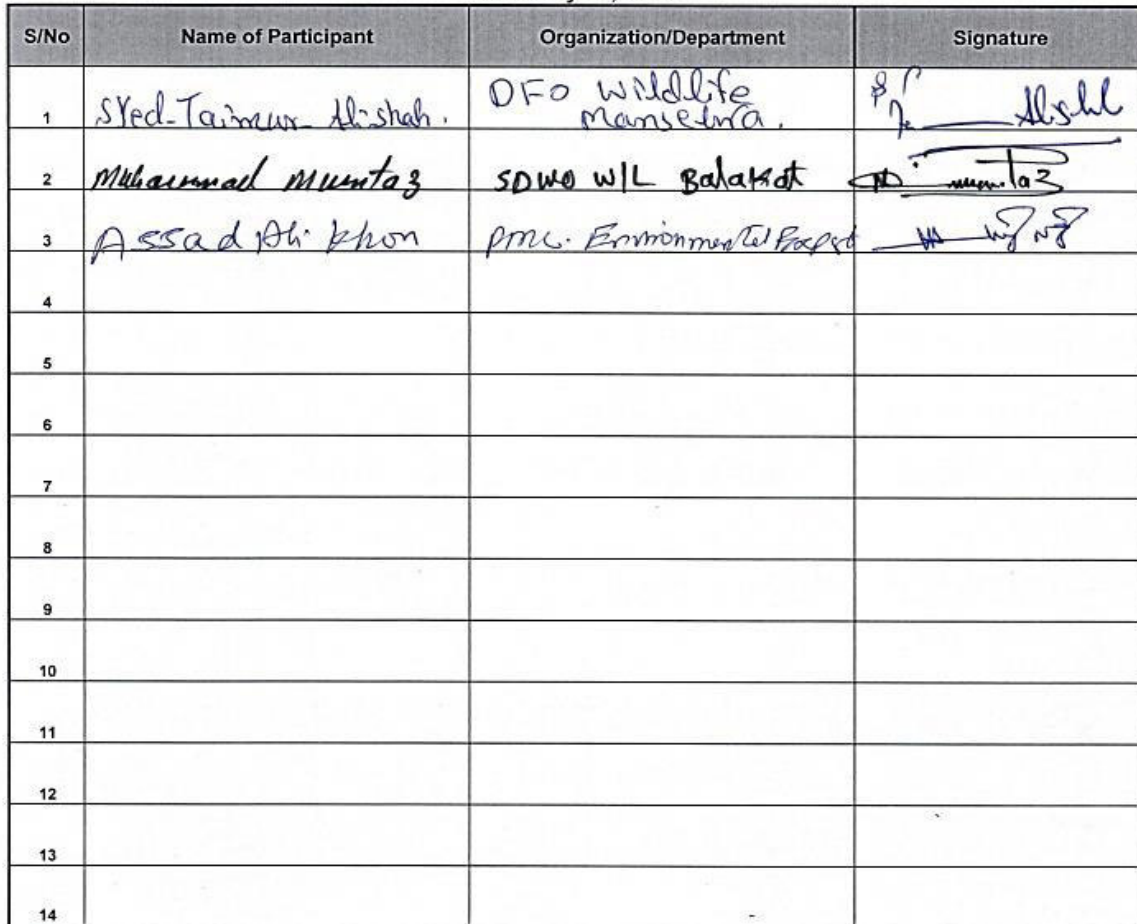 S/No Name of Participant Organization/Department Signature
1 SYed-Taimur-Ali-shah. DFO Wildlife
Mansehra. Alishl
2 Muhammad Mumtaz SDWO W/L Balakot M. mumtaz
3 Assad Ali khon PMC. Environmental
4
5
6
7
8
9
10
11
12
13
14